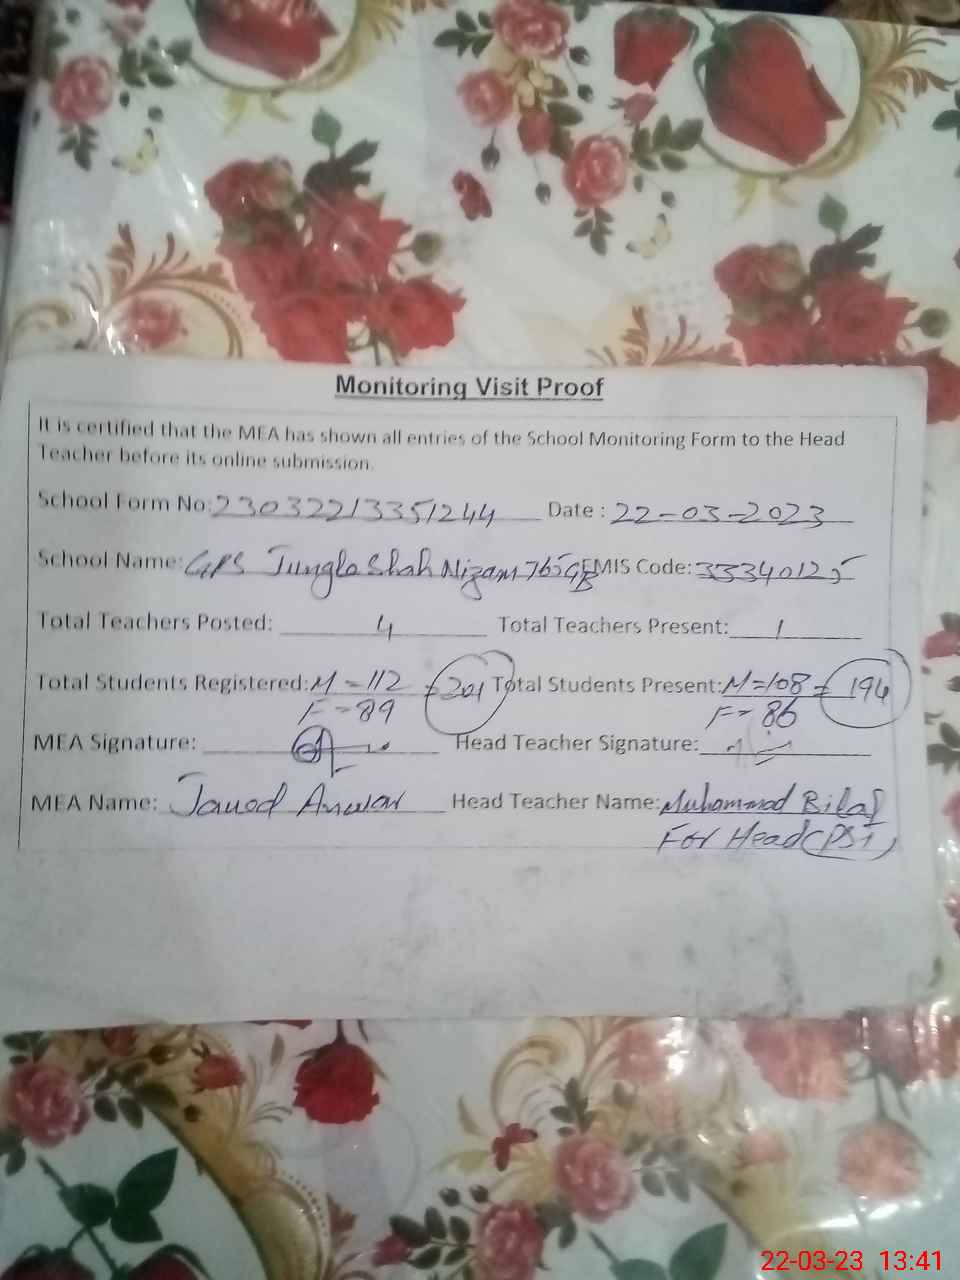 Monitoring Visit Proof
It is certified that the MEA has shown all entries of the School Monitoring Form to the Head
Teacher before its online submission.
School Form No: 23032213351244 Date : 22-03-2023
School Name: GPS Jungla Shah Nizam 765GB EMIS Code: 33340125
Total Teachers Posted: 4 Total Teachers Present: 1
Total Students Registered: M - 112 = 201 Total Students Present: M = 108 = 194
F - 89 F - 86
MEA Signature: Head Teacher Signature:
MEA Name: Javed Anwar Head Teacher Name: Muhammad Bilal
For Head (PST)
22-03-23 13:41